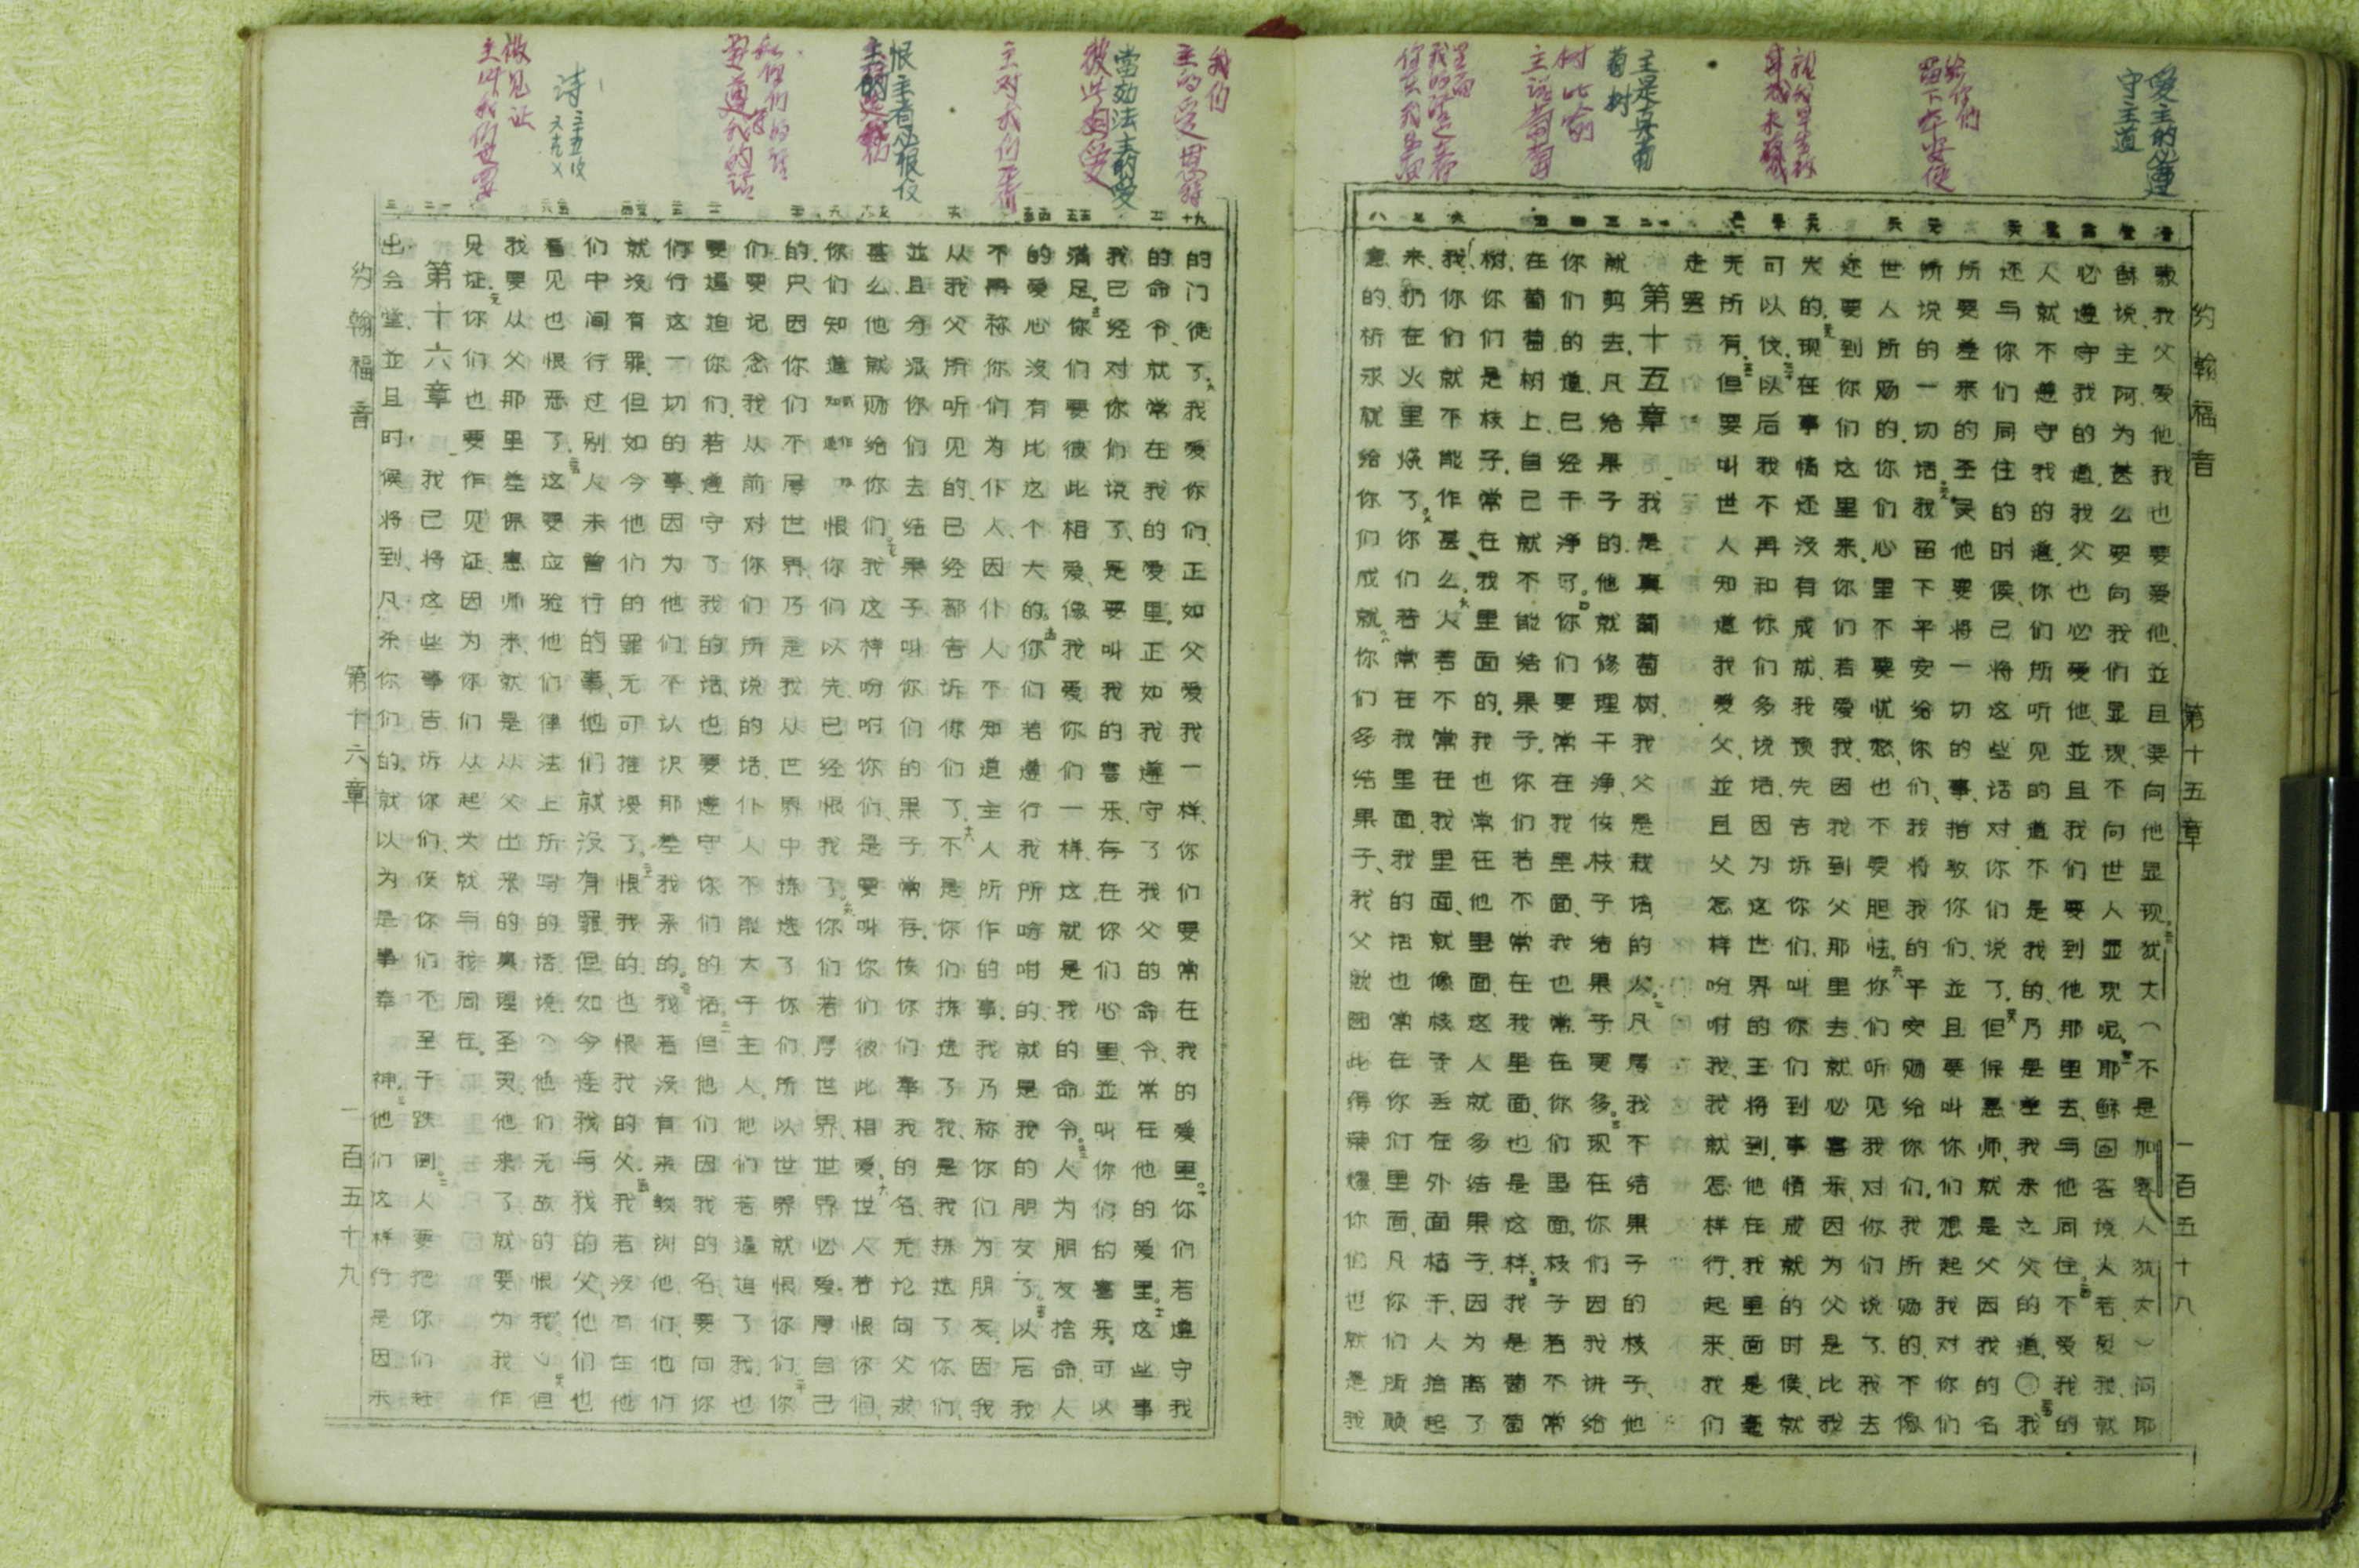 爱主的必遵
守主道
给你们
留下平安
主是真葡
萄树
树比喻
主说葡萄
约翰福音 第十五章 一百五十八
蒙我父爱他我也要爱他、並且要向他显现。犹大（不是加畧人犹大）问耶
稣说、主阿、为甚么要向我们显现、不向世人显现呢。耶稣回答说人若爱我、就
必遵守我的道、我父也必爱他、並且我们要到他那里去、与他同住。不爱我的
人就不遵守我的道。你们所听见的道不是我的、乃是差我来之父的道。〇我
还与你们同住的时候、已将这些话对你们说了。但保惠师、就是父因我的名
所要差来的圣灵他要将一切的事、指教你们、並且要叫你们想起我对你们
所说的一切话。我留下平安给你们、我将我的平安赐给你们。我所赐的、不像
世人所赐的、你们心里不要忧愁、也不要胆怯。你们听见我对你们说了、我去
还要到你们这里来、你们若爱我、因我到父那里去、就必喜乐、因为父是比我
大的。现在事情还没有成就、我预先告诉你们、叫你们到事情成就的时候、就
可以信。以后我不再和你们多说话、因为这世界的王将到、他在我里面是毫
无所有。但要叫世人知道我爱父、並且父怎样吩咐我、我就怎样行、起来我们
走罢
第十五章 我是真葡萄树、我父是栽培的人。凡属我不结果子的枝子、他
就剪去、凡给果子的、他就修理干净、使枝子结果子更多。现在你们因我讲给
你们的道、已经干净了。你们要常在我里面、我也常在你们里面、枝子若不常
在葡萄树上、自己就不能结果子、你们若不常在我里面、也是这样。我是葡萄
树、你们是枝子、常在我里面的、我也常在他里面、这人就多结果子、因为离了
我、你们就不能作甚么。人若不常在我里面、就像枝子丢在外面枯干、人拾起
来、扔在火里烧了。你们若常在我里面、我的话也常在你们里面、凡你们所愿
意的、祈求就给你们成就。你们多结果子、我父就因此得荣耀、你们也就是我
我们
當効法主的爱
彼此相爱
恨主者必恨仪
诗
做见证
主叫我们也要
的门徒了。我爱你们、正如父爱我一样、你们要常在我的爱里。你们若遵守我
的命令、就常在我的爱里。正如我遵守了我父的命令、並常在他的爱里。这些事
我已经对你们说了、是要叫我的喜乐、存在你们心里、並叫你们的喜乐、可以
满足。你们要彼此相爱、像我爱你们一样、这就是我的命令。人为朋友捨命、人
的爱心没有比这个大的。你们若遵行我所吩咐的、就是我的朋友了。以后我
不再称你们为仆人、因仆人不知道主人所作的事、我乃称你们为朋友、因我
从我父所听见的、已经都告诉你们了。不是你们拣选了我、是我拣选了你们、
並且分派你们去结果子、叫你们的果子常存、使你们奉我的名、无论向父求
甚么他就赐给你们。我这样吩咐你们、是要叫你们彼此相爱。世人若恨你们、
你们知道恨你们以先、已经恨我了。你们若属世界、世界必爱属自己
的、只因你们不属世界、乃是我从世界中拣选了你们、所以世界就恨你们。你
们要记念我从前对你们所说的话、仆人不能大于主人、他们若逼迫了我、也
要逼迫你们、若遵守了我的话、也要遵守你们的话。但他们因我的名要向你
们行这一切的事、因为他们不认识那差我来的。我若没有来教训他们、他们
就没有罪、但如今他们的罪无可推诿了。恨我的也恨我的父。我若没有在他
们中间行过别人未曾行的事、他们就没有罪、但如今连我与我的父、他们也
看见也恨恶了。这要应验他们律法上所写的话说、他们无故的恨我。但
我要从父那里差保惠师来、就是从父出来的真理圣灵他来了、就要为我作
见证。你们也要作见证、因为你们从起头就与我同在。
第十六章 我已将这些事告诉你们、使你们不至于跌倒。人要把你们赶
出会堂、並且时候将到、凡杀你们的、就以为是事奉神。他们这样行是因未
约翰福音 第十六章 一百五十九